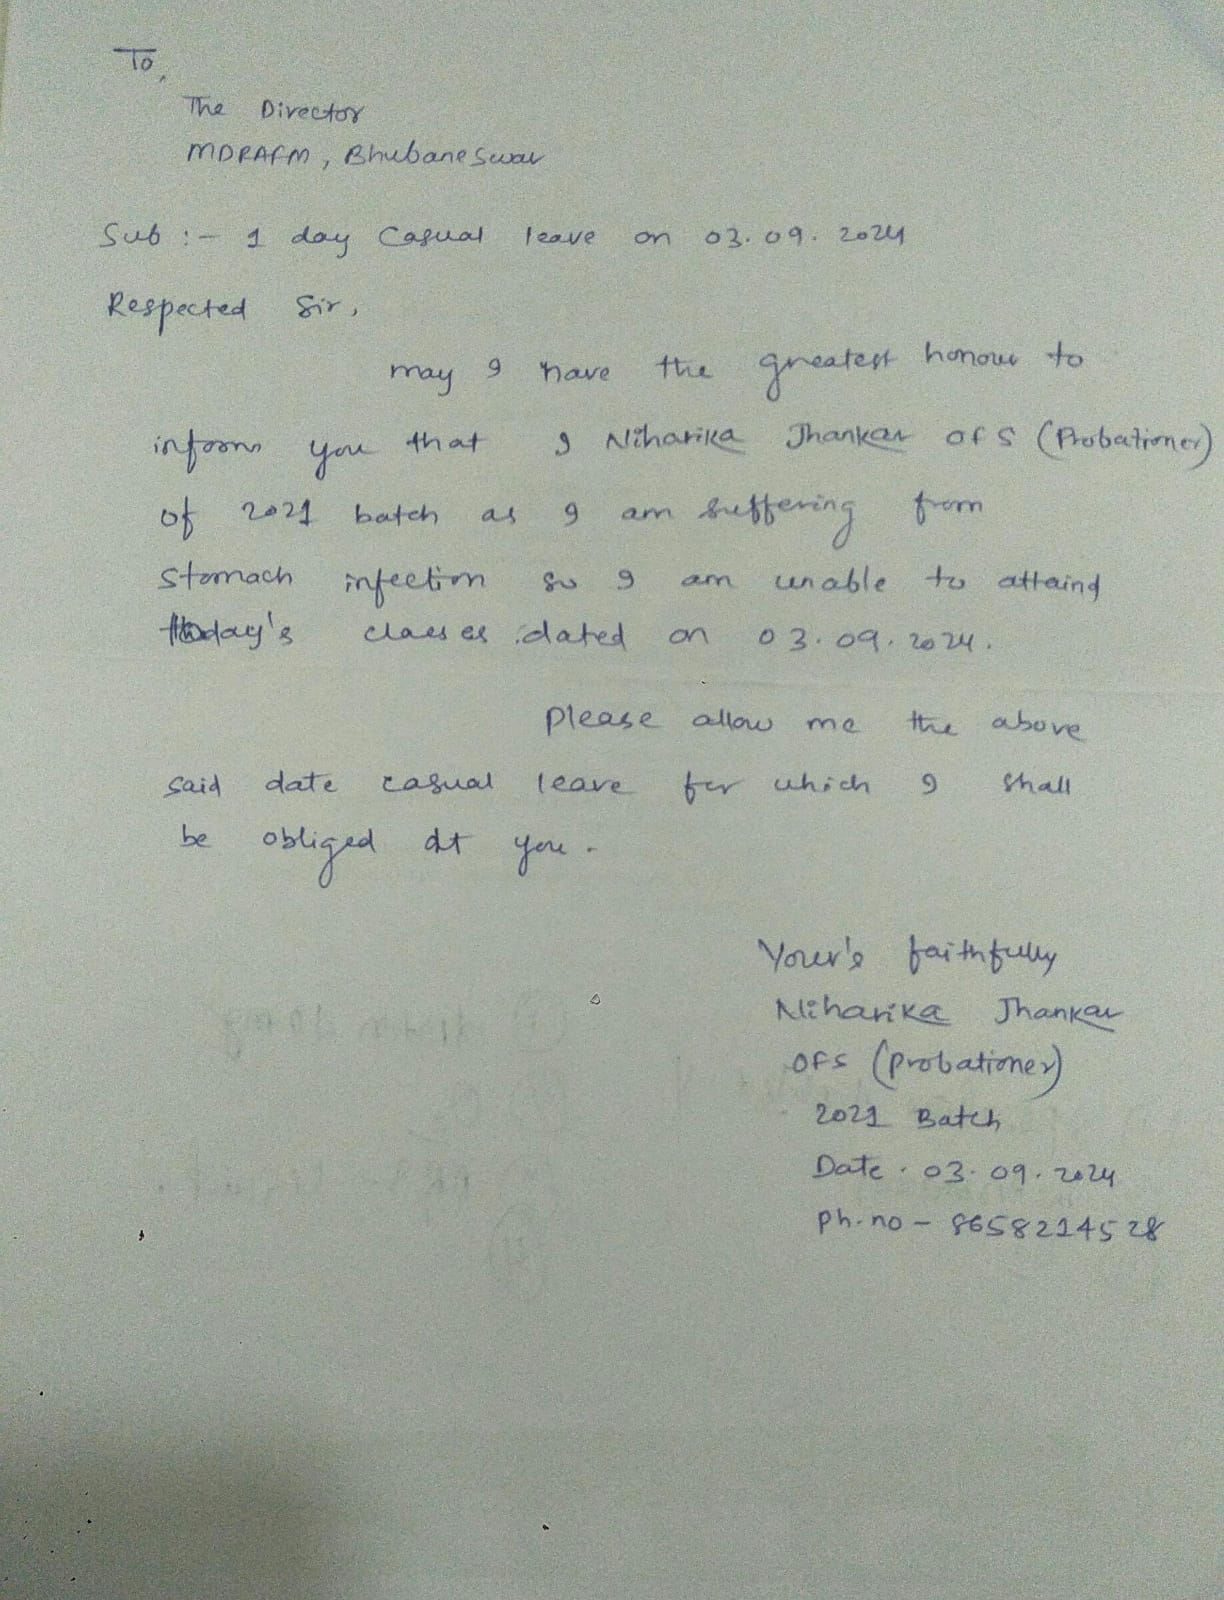 To,
The Director
MDRAFM, Bhubaneswar
Sub :- 1 day Casual leave on 03.09.2024
Respected Sir,
may I have the greatest honour to
inform you that I Niharika Jhankar OFS (Probationer)
of 2021 batch as I am suffering from
stomach infection so I am unable to attaind
today's classes dated on 03.09.2024.
Please allow me the above
said date casual leave for which I shall
be obliged at you.
Your's faithfully
Niharika Jhankar
OFS (Probationer)
2021 Batch
Date. 03.09.2024
Ph.no - 8658214528